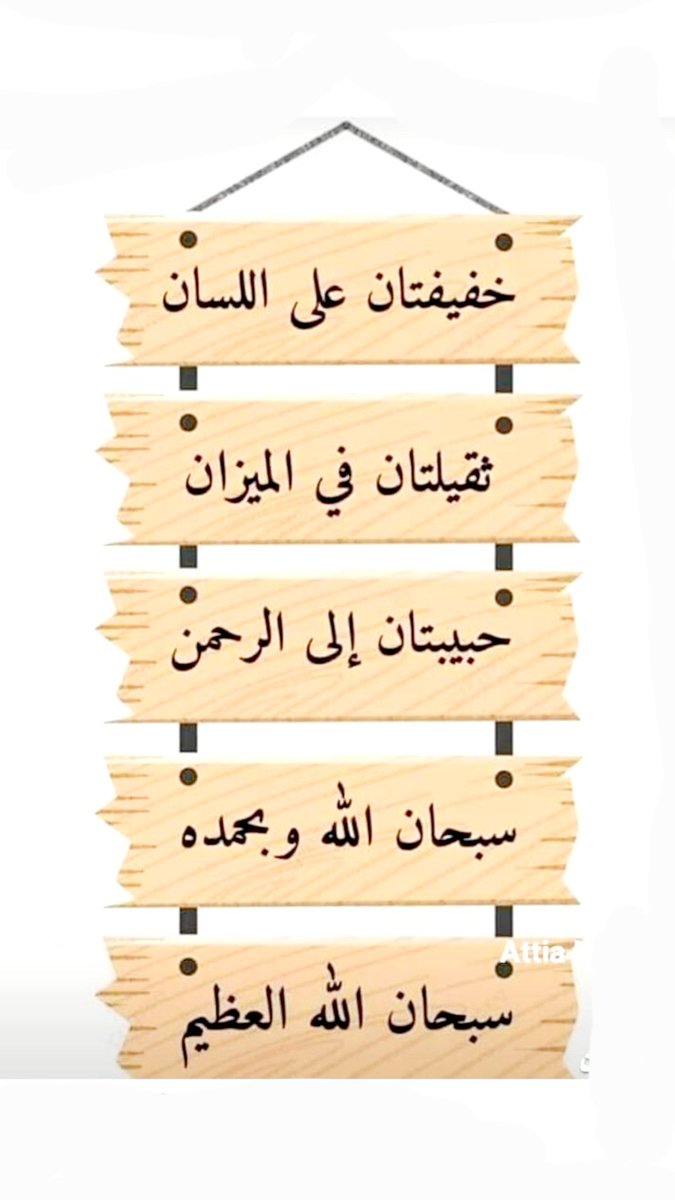 خفيفتان على اللسان
ثقيلتان في الميزان
حبيبتان إلى الرحمن
سبحان الله وبحمده
Attia
سبحان الله العظيم